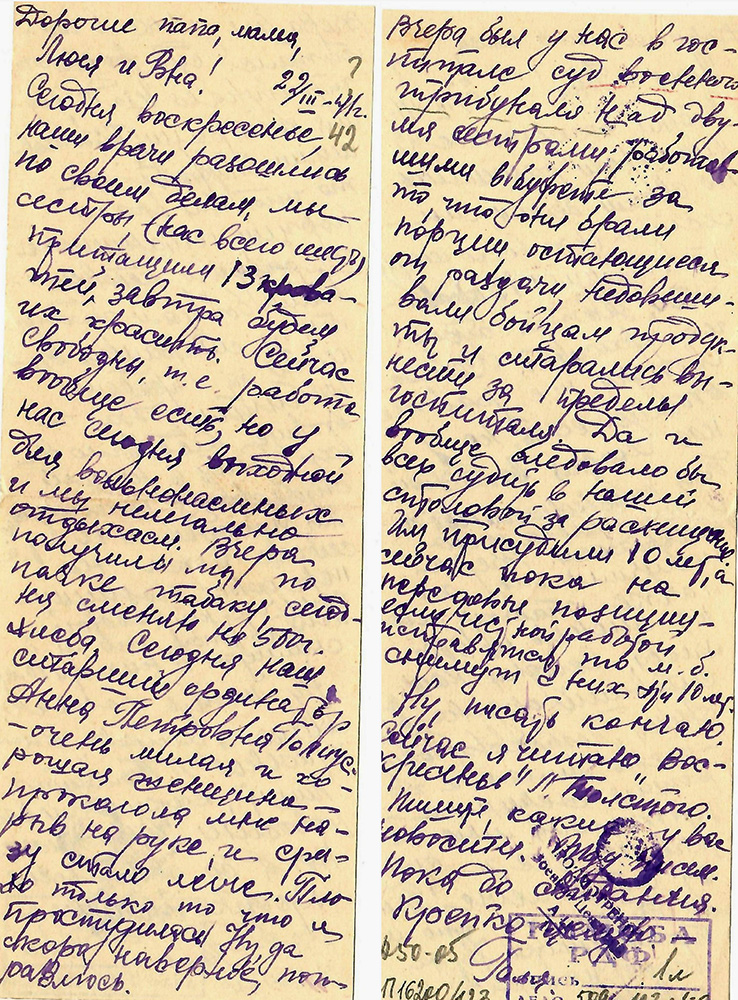 Дорогие папа, мама,
Люся и Вна!
22/III-41г.
?
42
Сегодня воскресенье,
наши врачи разошлись
по своим делам, мы
сестры, (нас всего
притащили 13 крова-
тей, завтра будем
их красить. Сейчас
свободны, т.е. работы
вообще есть, но у
нас сегодня выходной
для вольнонаемных
и мы нелегально
отдыхаем. Вчера
получили мы по
пачке табаку, сегод-
ня сменяю на 500г.
хлеба. Сегодня наш
старший ординатор
Анна Петровна
- очень милая и хо-
рошая женщина -
проколола мне на-
рыв на руке и сра-
зу стало легче. Пло
хо только то что я
простудилась. Ну да
скоро наверное, поп-
равлюсь.
Вчера был у нас в гос-
питале суд военного
трибунала над дву-
мя сестрами, работав
шими в буфете за
то что они брали
порции остающиеся
от раздачи, недовеши-
вали бойцам продук-
ты и старались вы-
нести за пределы
госпиталя. Да и
вообще следовало бы
всех судить в нашей
столовой за расхищение.
Им присудили 10 лет, а
сейчас пока на
передовые позиции -
если честной работой
исправятся, то м. б.
снимут с них эти 10 лет.
Ну, писать кончаю.
Сейчас я читаю "Вос-
кресенье" Л. Толстого.
Пишите какие у вас
новости. Жду писем.
Пока до свидания.
Крепко целую
Галя
050-05
1л
П16200/123